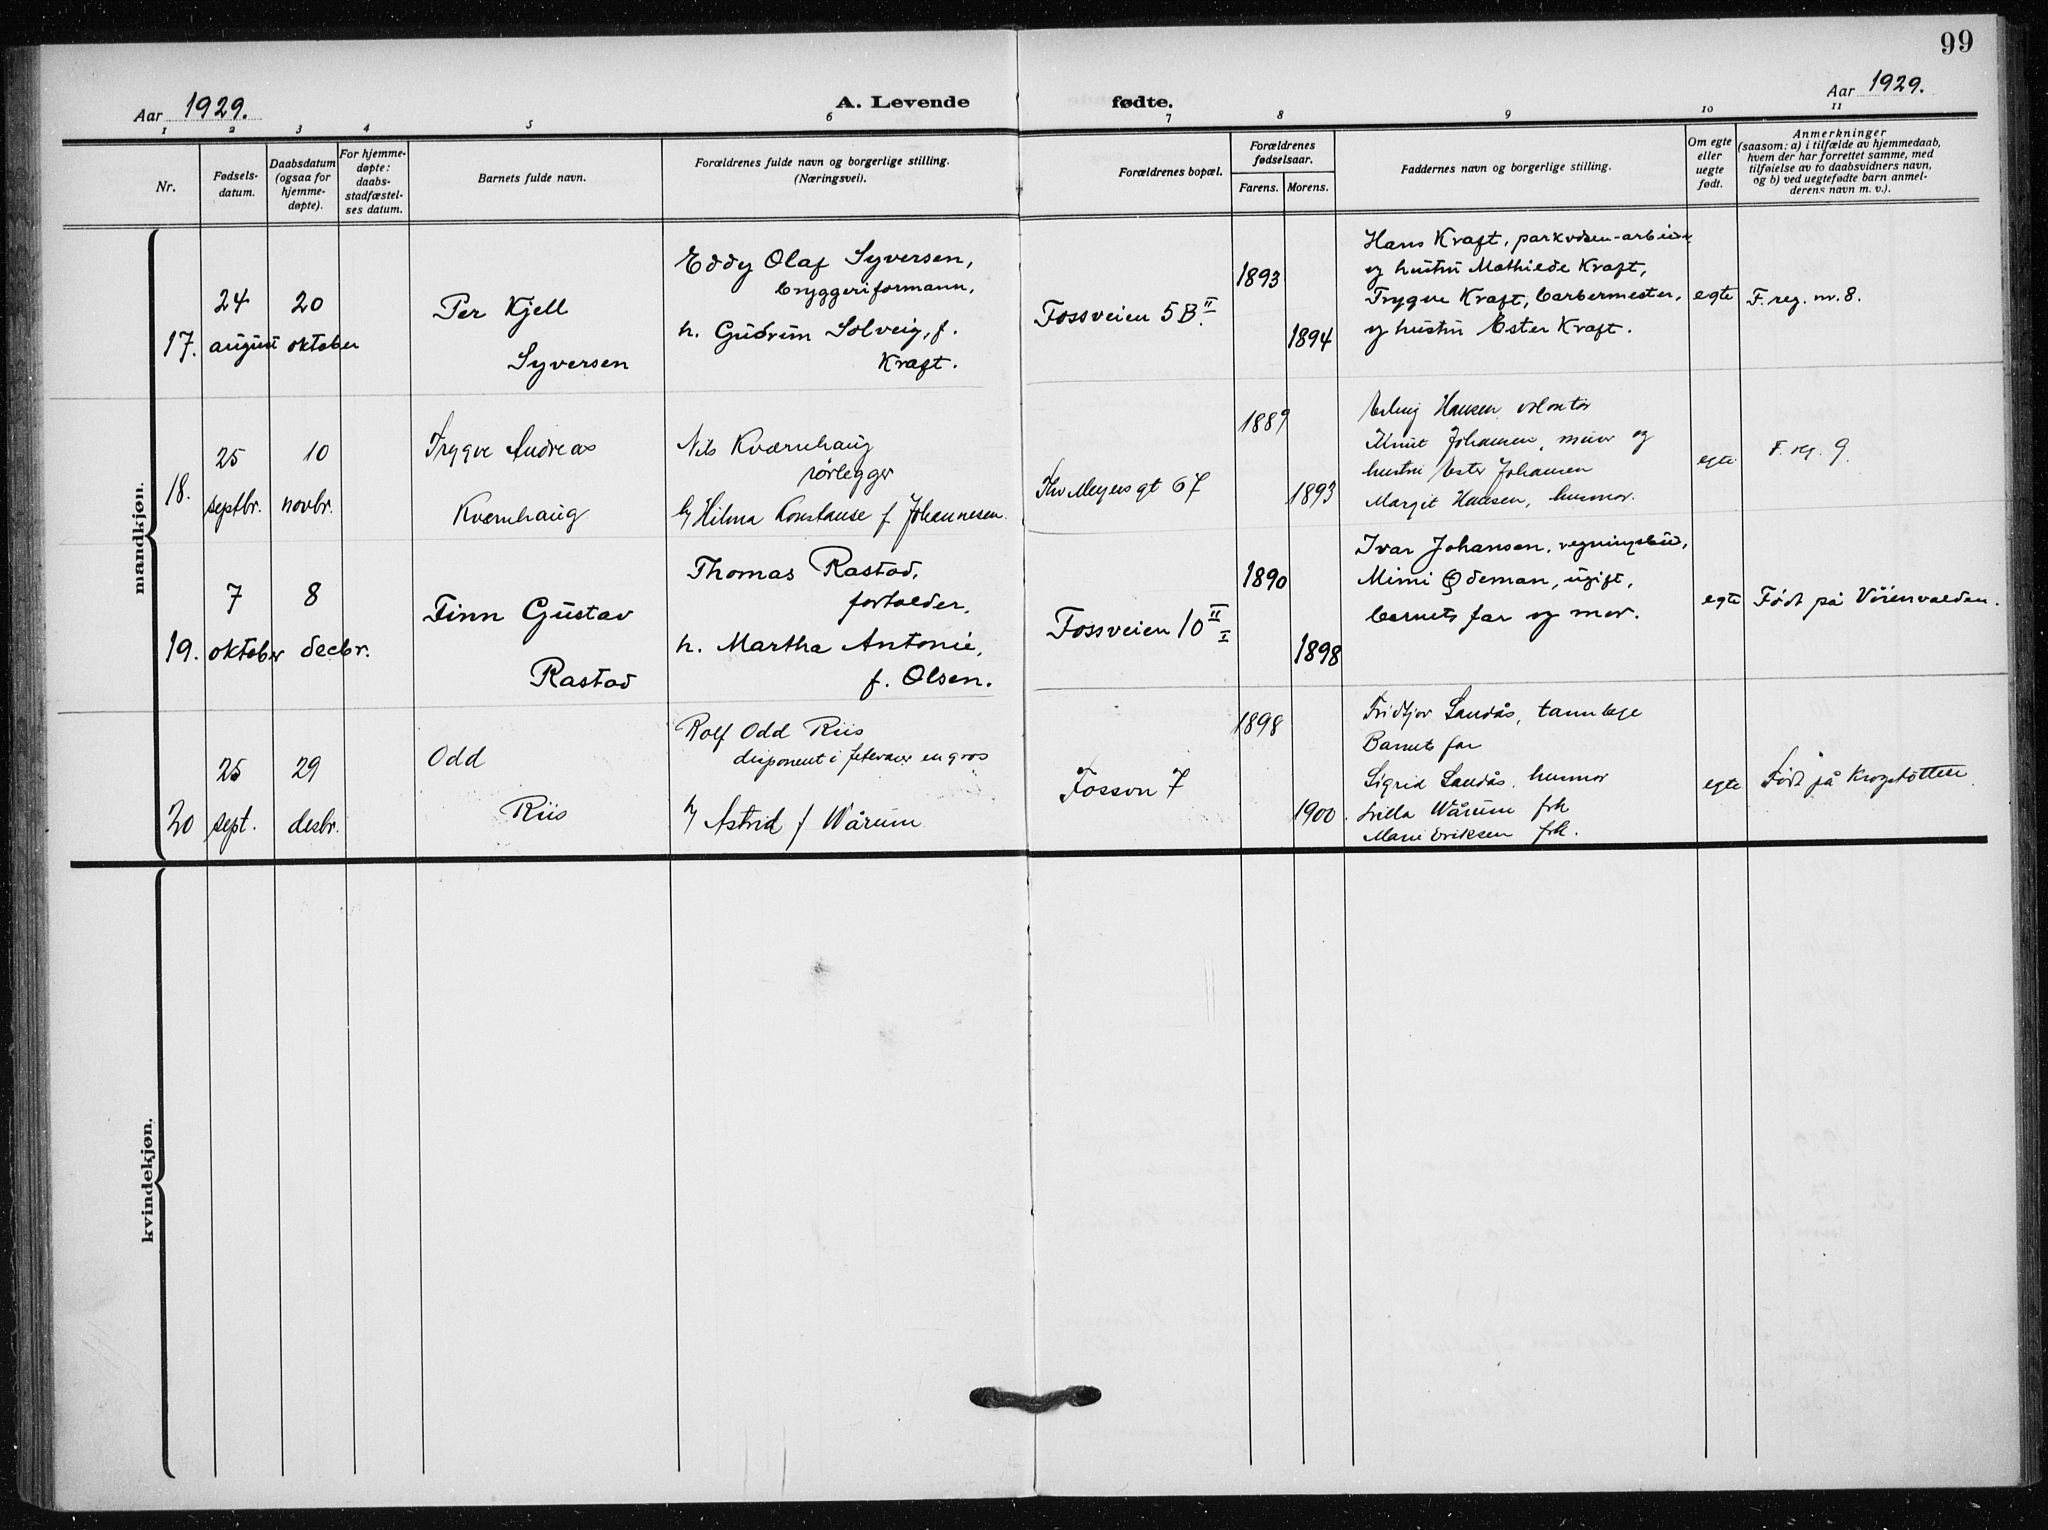 99
Aar 1929.
A. Levende fødte.
Aar 1929.
1 2 3 4 5 6 7 8 9 10 11
Nr.
Fødsels-
datum.
Daabsdatum
(ogsaa for
hjemme-
døpte).
For hjemme-
døpte:
daabs-
stadfæstel-
ses datum.
Barnets fulde navn.
Forældrenes fulde navn og borgerlige stilling.
(Næringsvei).
Forældrenes bopæl.
Forældrenes
fødselsaar.
Farens. Morens.
Faddernes navn og borgerlige stilling.
Om egte
eller
uegte
født.
Anmerkninger
(saasom: a) i tilfælde av hjemmedaab,
hvem der har forrettet samme, med
tilføielse av to daabsvidners navn,
og b) ved uegtefødte barn anmel-
derens navn m. v.).
mandkjøn.
17.
24
august
20
oktober
Per Kjell
Syversen
Eddy Olaf Syversen,
bryggeriformann,
h. Gudrun Solveig, f.
Kraft.
Fossveien 5B II.
1893
1894
Hans Kraft, parkvdsen-arbeid.
og hustru Mathilde Kraft,
Trygve Kraft, barbermester,
og hustru Ester Kraft.
egte
F. reg. nr. 8.
18.
25
septbr.
10
novbr.
Trygve Andreas
Kværnhaug
Nils Kværnhaug
rørlegger
h/ Hilma Konstanse f. Johannesen.
Thv Meyers gt 67
1889
1893
Erling Hansen volontør
Knut Johansen, murer og
hustru Ester Johansen
Margit Hansen, husmor.
egte
F. reg. 9.
19.
7
oktober
8
decbr.
Finn Gustav
Rastad
Thomas Rastad,
forholder,
h. Martha Antonie,
f. Olsen.
Fossveien 10 II I
1890
1898
Ivar Johansen, regningsbud,
Mimi Ødeman, ugift,
barnets far og mor.
egte
Født på Vøienvolden.
20
25
sept.
29
desbr.
Odd
Riis
Rolf Odd Riis
disponent i fetevarer en gros
h/ Astrid f Wårum
Fossvn 7
1898
1900.
Fridtjov Sandås, tannlege
Barnets far
Sigrid Sandås, husmor
Lilla Wårum frk
Marie Eriksen frk.
egte
Født på Krogstøtten
kvindekjøn.